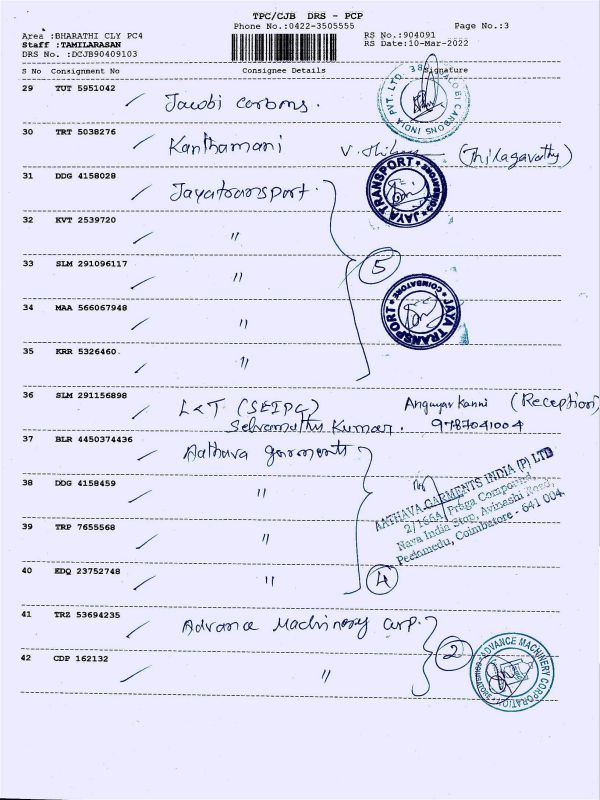 TPC/CJB DRS - PCP
Phone No.:0422-3505555 Page No.:3
Area :BHARATHI CLY PC4 RS No.:904091
Staff :TAMILARASAN RS Date:10-Mar-2022
DRS No. :DCJB90409103
S No Consignment No Consignee Details Signature
29 TUT 5951042 Jacobi carbons.
JACOBI CARBONS INDIA PVT. LTD. 38
30 TRT 5038276 Kanthamani (Thilagavathy)
31 DDG 4158028 Jayatransport.
JAYA TRANSPORT COIMBATORE
32 KVT 2539720 "
33 SLM 291096117 " 5
34 MAA 566067948 "
JAYA TRANSPORT COIMBATORE
35 KRR 5326460 "
36 SLM 291156898 L&T (SEIPC) Angayarkanni (Reception)
Selvamuthu Kumar. 9787041004
37 BLR 4450374436 Aathava garments
38 DDG 4158459 "
AATHAVA GARMENTS INDIA (P) LTD
2/166A, Praga Compound,
Nava India Stop, Avinashi Road,
Peelamedu, Coimbatore - 641 004.
39 TRP 7655568 "
40 EDQ 23752748 " 4
41 TRZ 53694235 Advance Machinery Corp. 2
ADVANCE MACHINERY CORPORATION
42 CDP 162132 "